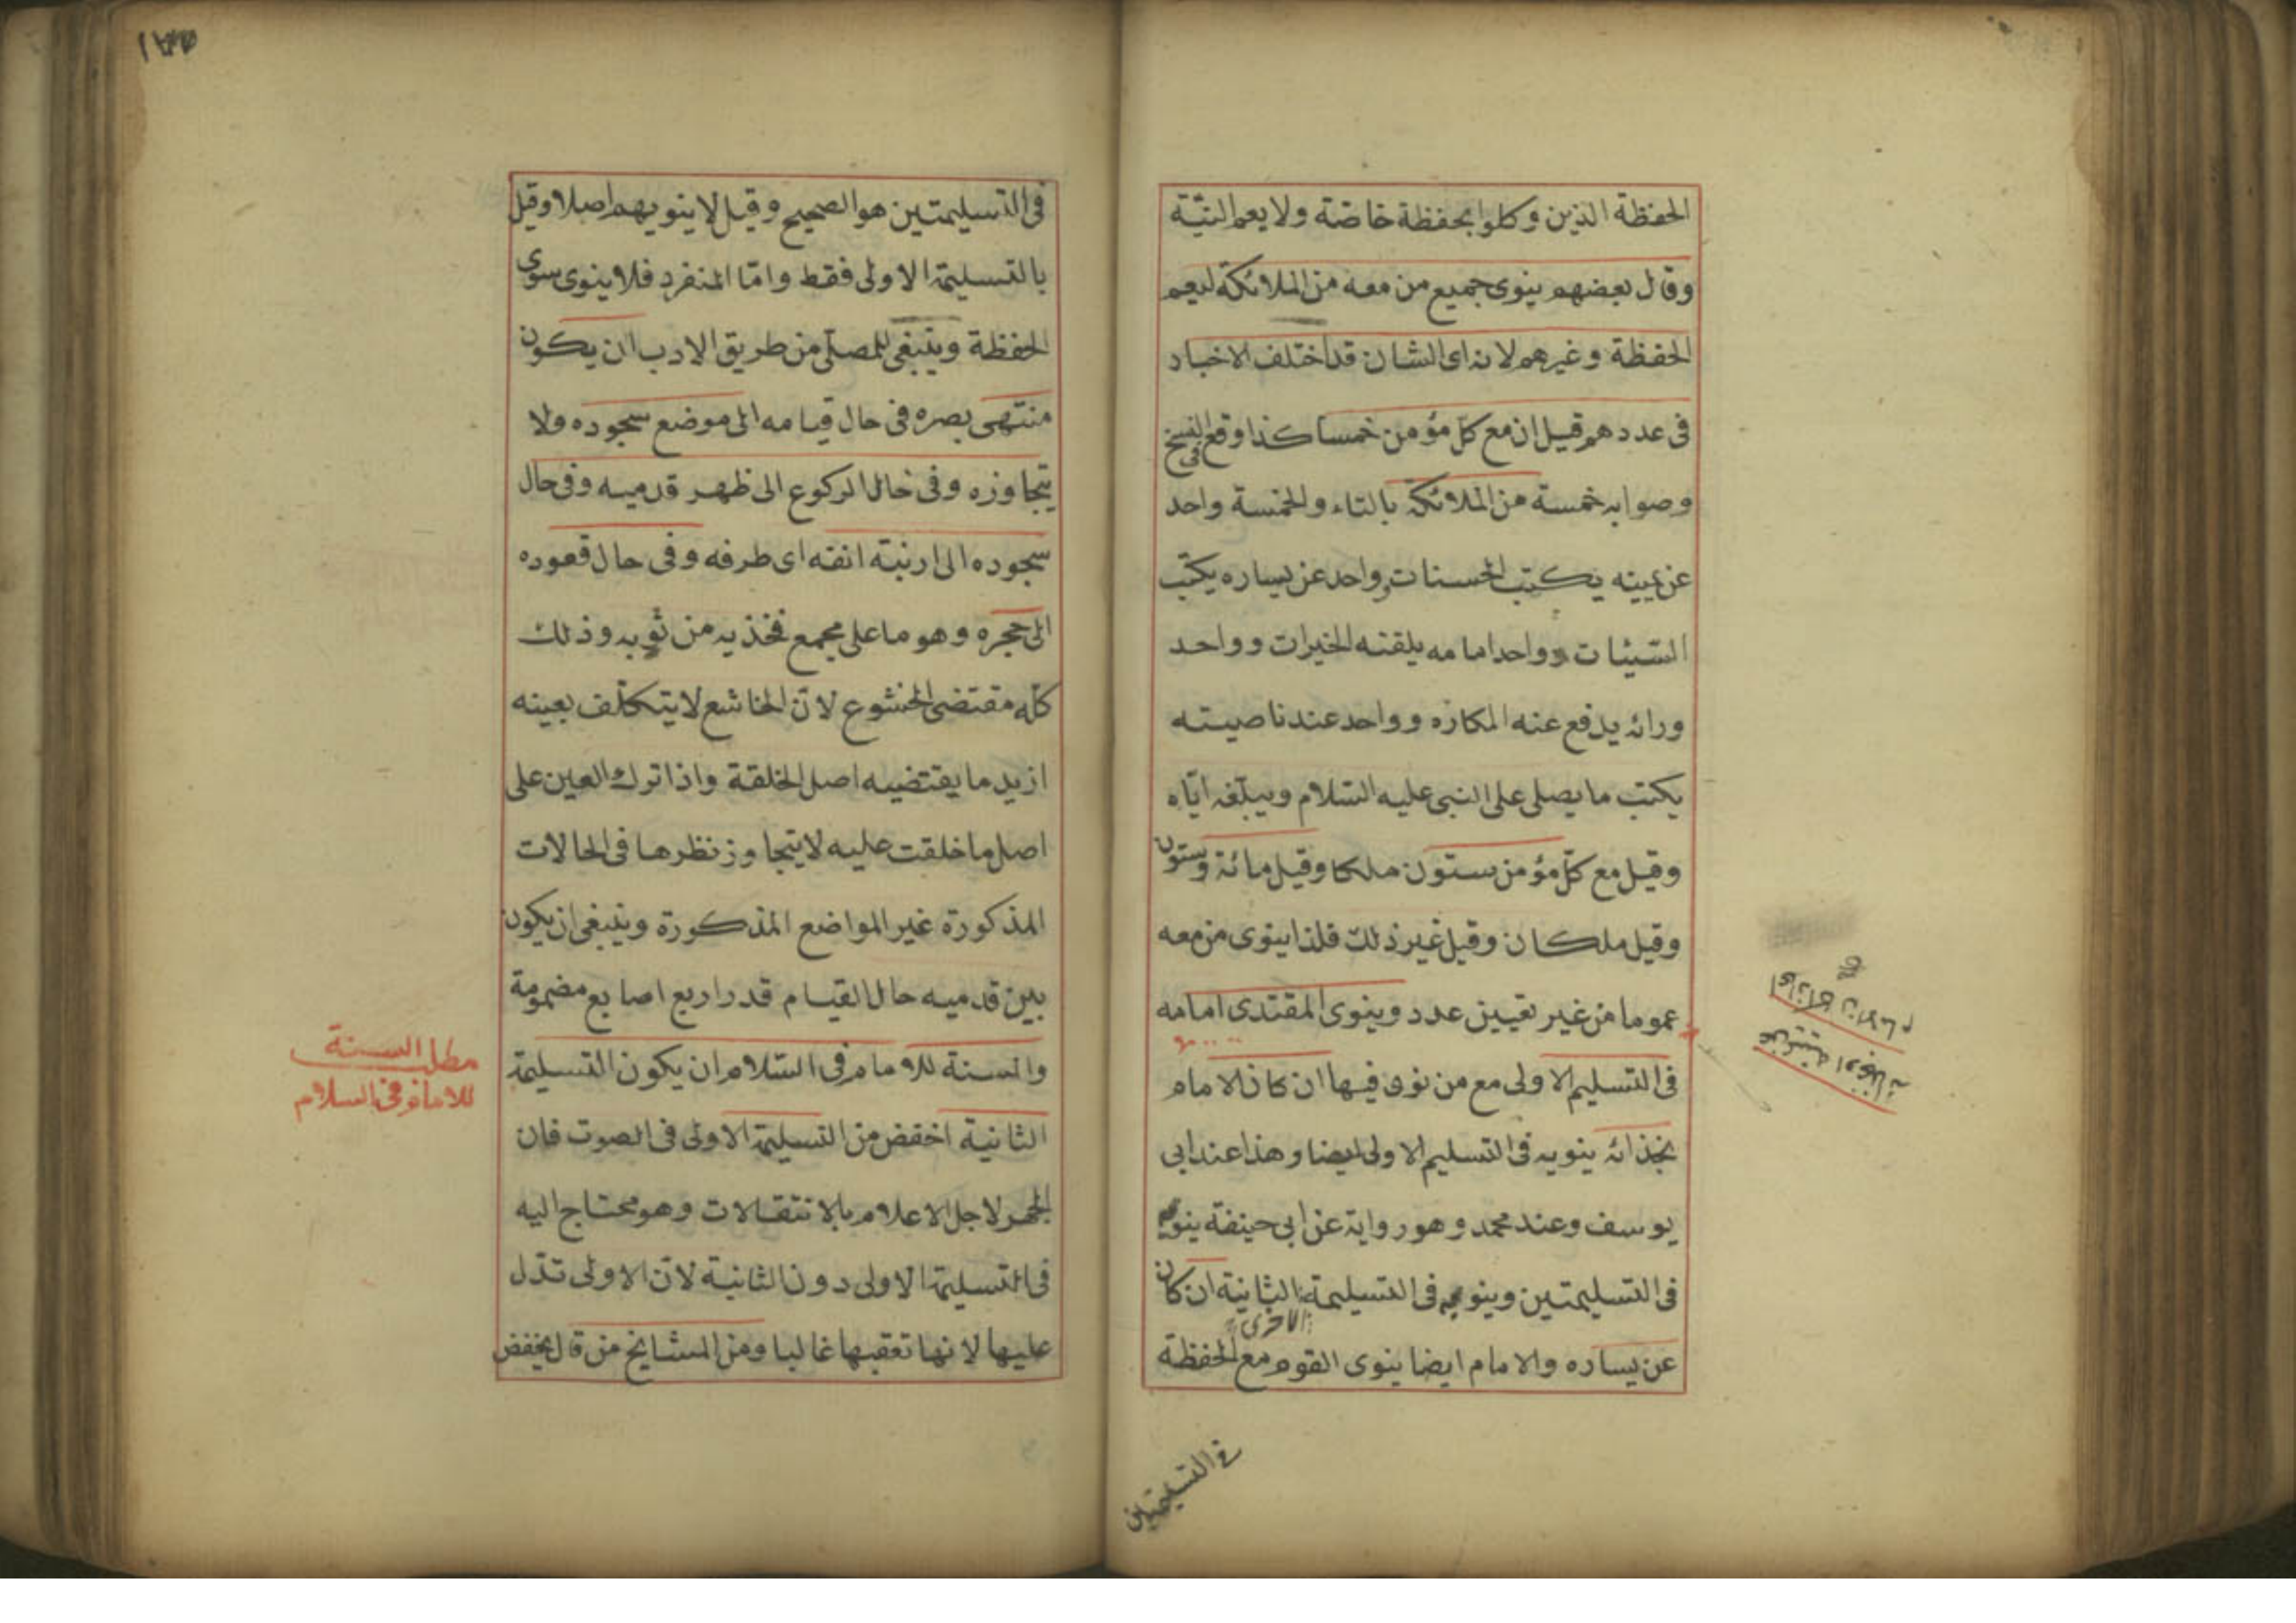 الحفظة الذين وكلوا بحفظة خاصة ولا يعم النية
وقال بعضهم ينوى جميع من معه من الملائكة ليعم
الحفظة وغيرهم لانه اى الشان قد اختلف الاخبار
فى عددهم قيل ان مع كل مؤمن خمسا كذا وقع فى النسخ
وصوابه خمسة من الملائكة بالتاء والخمسة واحد
عن يمينه يكتب الحسنات وواحد عن يساره يكتب
السيئات وواحد امامه يلقنه الخيرات وواحد
ورائه يدفع عنه المكاره وواحد عند ناصيته
يكتب ما يصلى على النبى عليه السلام ويبلغه اياه
وقيل مع كل مؤمن ستون ملكا وقيل مائة وستون
وقيل ملكان وقيل غير ذلك فلذا ينوى من معه
عموما من غير تعيين عدد وينوى المقتدى امامه
فى التسليم الاولى مع من نوى فيها ان كان الامام
بحذائه ينويه فى التسليم الاولى ايضا وهذا عند ابى
يوسف وعند محمد وهو رواية عن ابى حنيفة ينويه
فى التسليمتين وينويه فى التسليمة الثانية ان كان
الاخرى
عن يساره والامام ايضا ينوى القوم مع الحفظة
فى التسليمتين
اى اذا كان الامام
عن يمينه او بحذائه
فى التسليمتين هو الصحيح وقيل لا ينويهم اصلا وقيل
بالتسليمة الاولى فقط واما المنفرد فلا ينوى سوى
الحفظة وينبغى للمصلى من طريق الادب ان يكون
منتهى بصره فى حال قيامه الى موضع سجوده ولا
يتجاوزه وفى حال الركوع الى ظهر قدميه وفى حال
سجوده الى ارنبة انفه اى طرفه وفى حال قعوده
الى حجره وهو ما على مجمع فخذيه من ثوبه وذلك
كله مقتضى الخشوع لان الخاشع لا يتكلف بعينه
ازيد ما يقتضيه اصل الخلقة واذا ترك العين على
اصل ما خلقت عليه لا يتجاوز نظرها فى الحالات
المذكورة غير المواضع المذكورة وينبغى ان يكون
بين قدميه حال القيام قدر اربع اصابع مضمومة
والسنة للامام فى السلام ان يكون التسليمة
الثانية اخفض من التسليمة الاولى فى الصوت فان
الجهر لاجل الاعلام بالانتقالات وهو محتاج اليه
فى التسليمة الاولى دون الثانية لان الاولى تدل
عليها لانها تعقبها غالبا ومن المشايخ من قال يخفض
مطلب السنة
للامام فى السلام